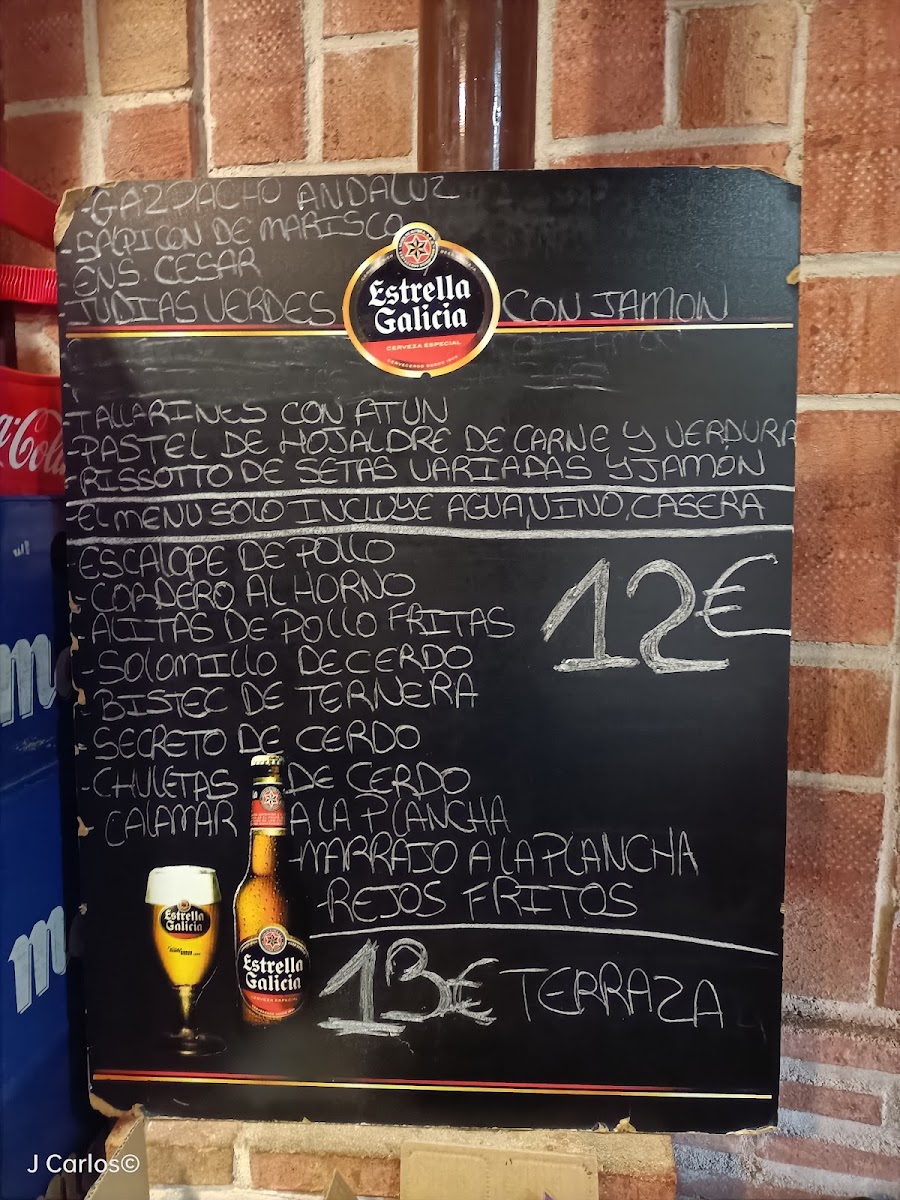 -GAZPACHO ANDALUZ
-SALPICON DE MARISCO
-ENS CESAR
-JUDIAS VERDES CON JAMON
Estrella
Galicia
CERVEZA ESPECIAL
-TALLARINES CON ATUN
-PASTEL DE HOJALDRE DE CARNE Y VERDURA
-RISSOTTO DE SETAS VARIADAS Y JAMÓN
-EL MENU SOLO INCLUYE AGUA,VINO,CASERA
-ESCALOPE DE POLLO
-CORDERO AL HORNO
-ALITAS DE POLLO FRITAS
-SOLOMILLO DE CERDO
-BISTEC DE TERNERA
-SECRETO DE CERDO
-CHULETAS DE CERDO
-CALAMAR A LA PLANCHA
-MARRAJO A LA PLANCHA
-REJOS FRITOS
12€
13€ TERRAZA
Estrella
Galicia
Estrella
Galicia
CERVEZA ESPECIAL
a-Cola
m
m
J Carlos©